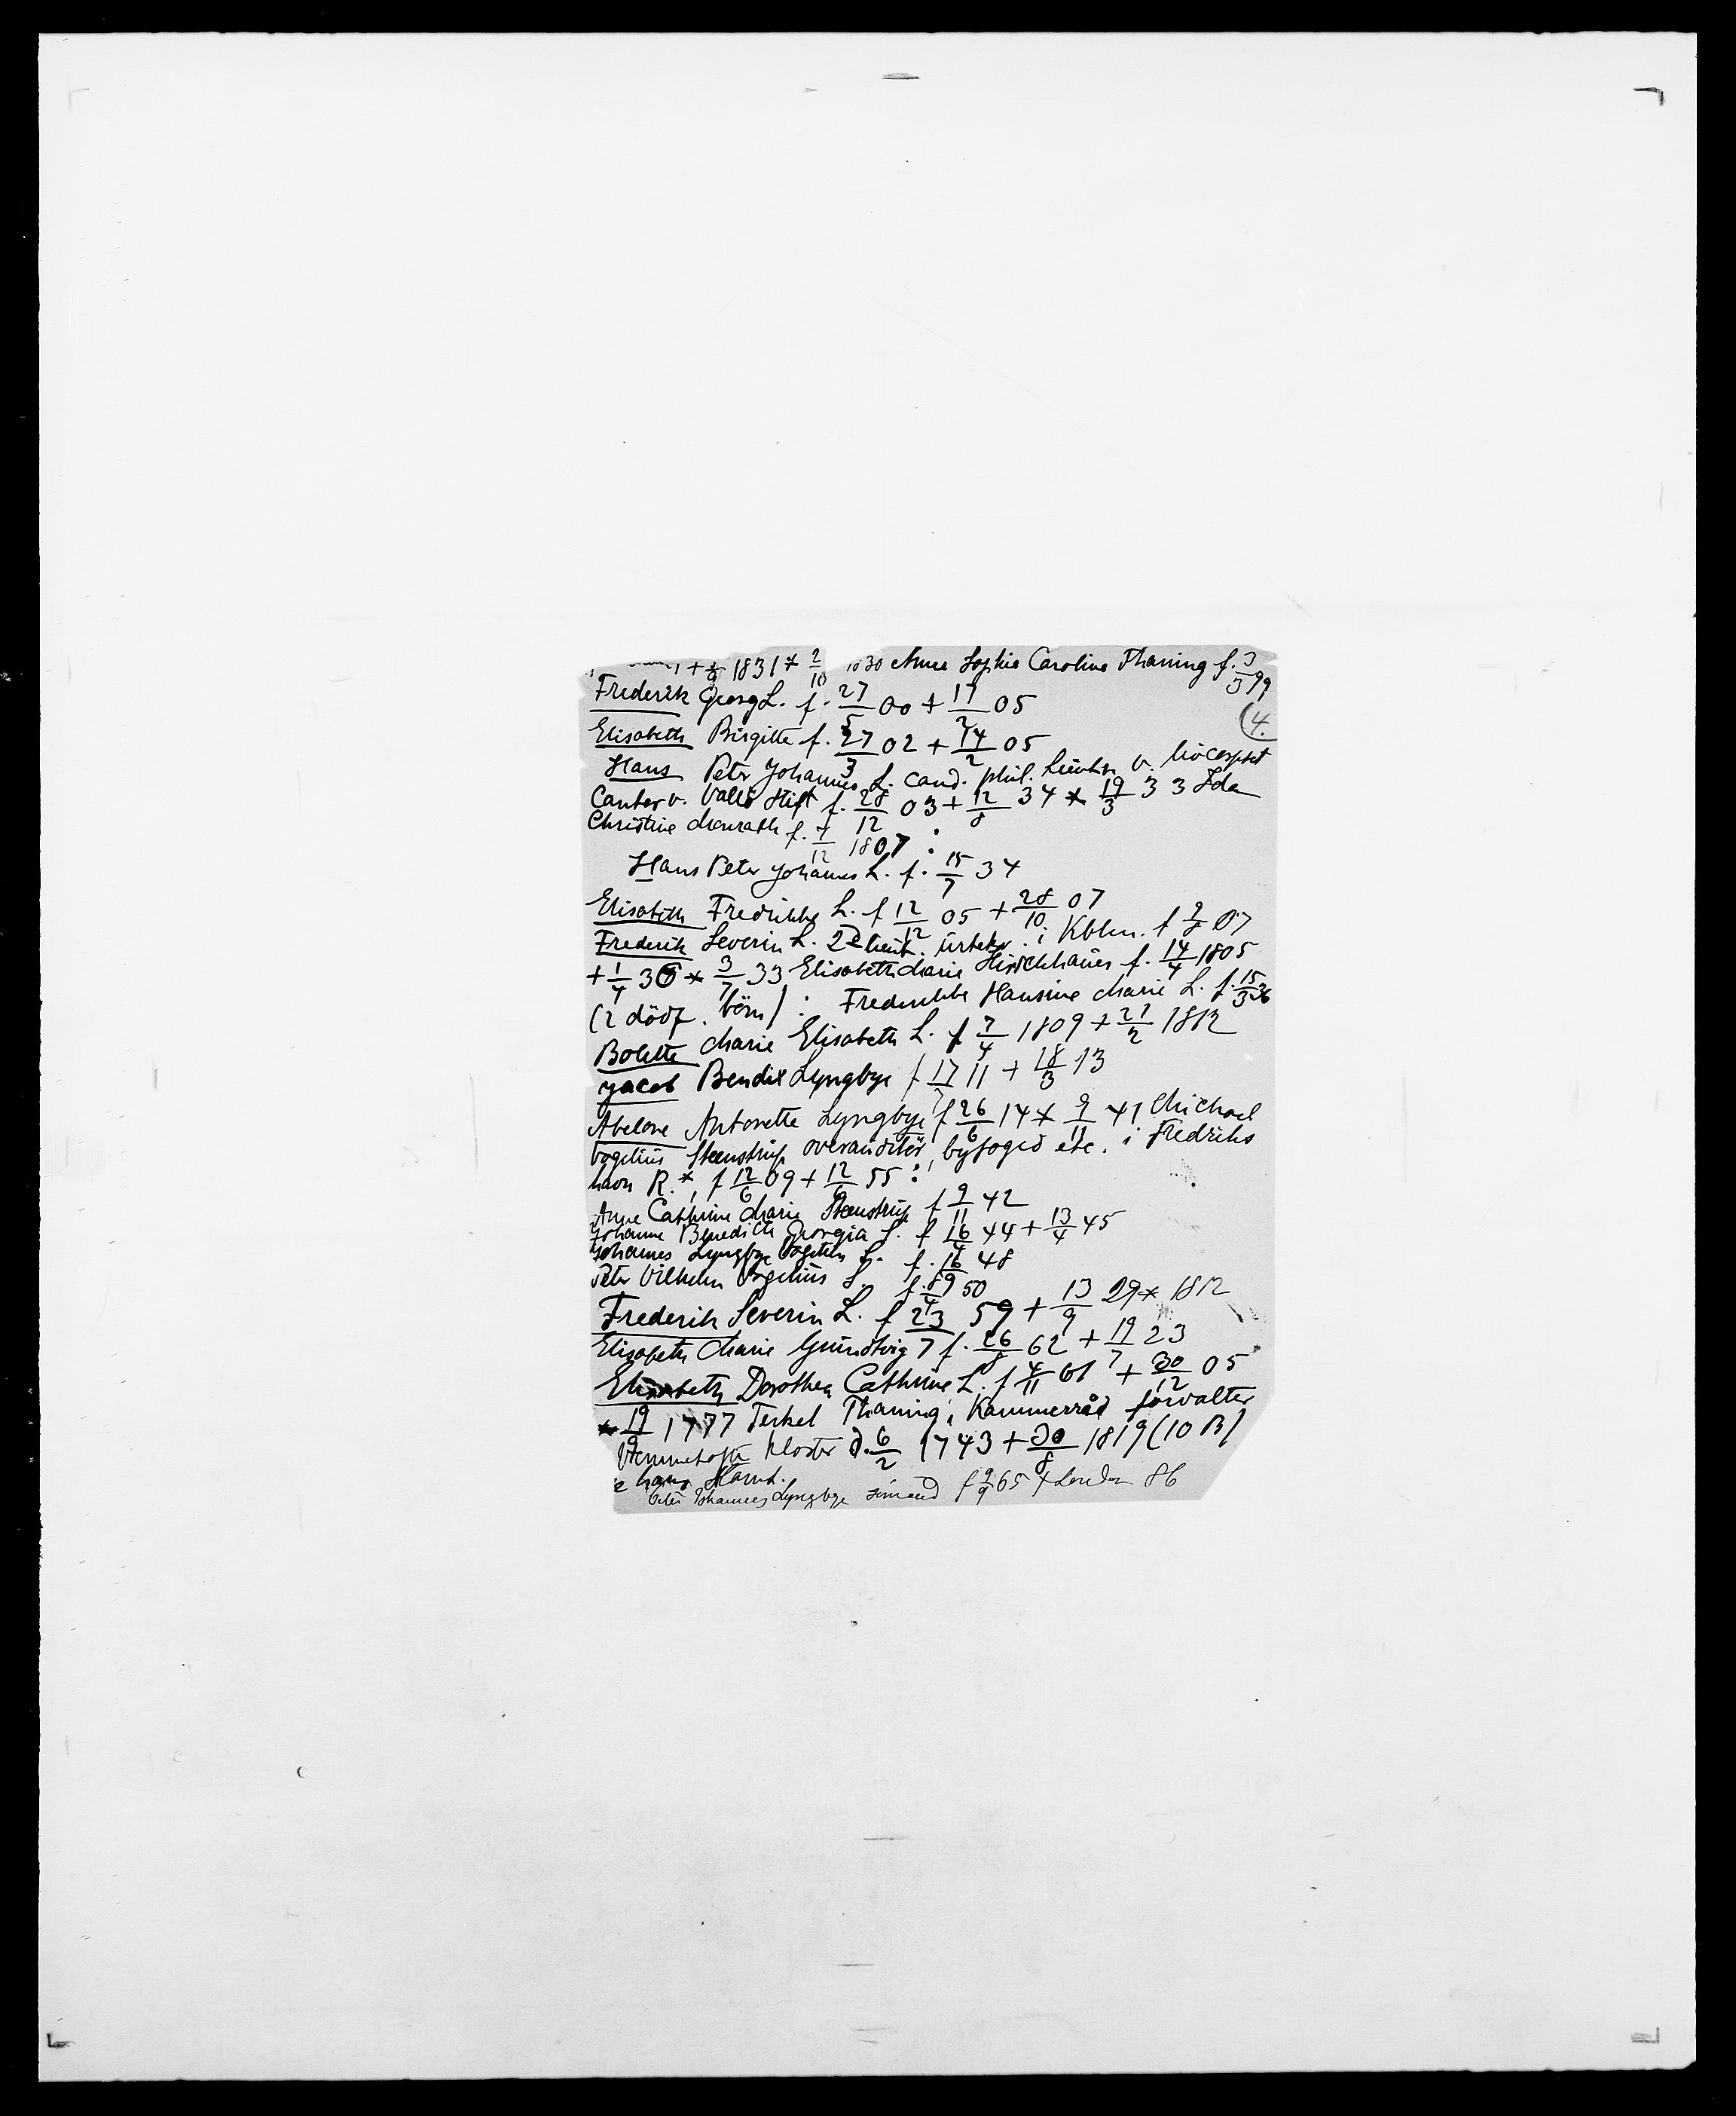 + 1831 * 2/10 1830 Anne Sophie Caroline Thaning f. 3/3 99
Frederik Georg L. f. 27/5 00 + 17/2 05
(4.
Elisabeth Birgitte f. 27/3 02 + 14/2 05
Hans Peter Johannes L. cand. phil.
Cantor v. Vallö Stift f. 28/12 03 + 12/8 34 * 19/3 33 Ida
Christine f. 7/12 1807 :
Hans Peter Johannes L. f. 15/7 34
Elisabeth Fredrikke L. f 12/12 05 + 28/10 07
Frederik Severin L. 2de lieut. i Kbhn. f 2/8 07
+ 1/4 36 * 3/7 33 Elisabeth Marie f. 14/4 1805
(2 dödf. börn) : Frederikke Hansine Marie L. f. 15/3 36
Bolette Marie Elisabeth L. f 7/4 1809 + 21/2 1812
Jacob Bendix Lyngbye f 17/7 11 + 18/3 13
Abelone Antonette Lyngbye f 26/6 14 * 9/11 41 Michael
Vogelius Steenstrup overauditör, byfoged etc. i Fredriks
havn R.*, f 12/6 09 + 12/6 55 :
Anne Cathrine Marie Steenstrup f 9/11 42
Johanne Benedicte Georgia S. f 16/4 44 + 13/4 45
Johannes Lyngbye Vogelius S. f. 16/4 48
Peter Vilhelm Vogelius S. f. 29/4 50
Frederik Severin L. f 23/7 59 + 13/9 29 * 1812
Elisabeth Marie Grundtvig f. 26/8 62 + 19/7 23
Elisabeth Dorothea Cathrine L. f 4/11 61 + 30/12 05
* 19/9 1777 Terkel Thaning, Kammerråd forvalter
Vemmetofte Kloster d. 6/2 1743 + 30/8 1819 (10 B)
Peter Johannes Lyngbye sömand f 9/9 65 + London 86